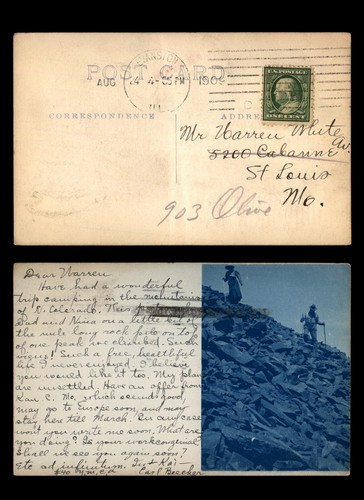 EVANSTON
ILL.
AUG 24 4-30PM 1909
POST CARD
U.S. POSTAGE
ONE CENT
CORRESPONDENCE
ADDRESS
Mr Warren White
5200 Cabanne Av.
St Louis
Mo.
903 Olive
Dear Warren
Have had a wonderful
trip camping in the mountains
of S. Colorado. This picture of
Dad and Nina on a little bit of
the mile long rock pile on top
of one peak we climbed. Such
views! Such a free, healthful
life I never enjoyed. I believe
you would like it too. My plans
are unsettled. Have an offer from
Kan C. Mo. which sounds good,
may go to Europe soon, and may
stay here till March. In any case
won't you write me soon. What are
you doing? Is your work congenial
Shall we see you again soon?
Etc ad infinitum.
Carl Beecher